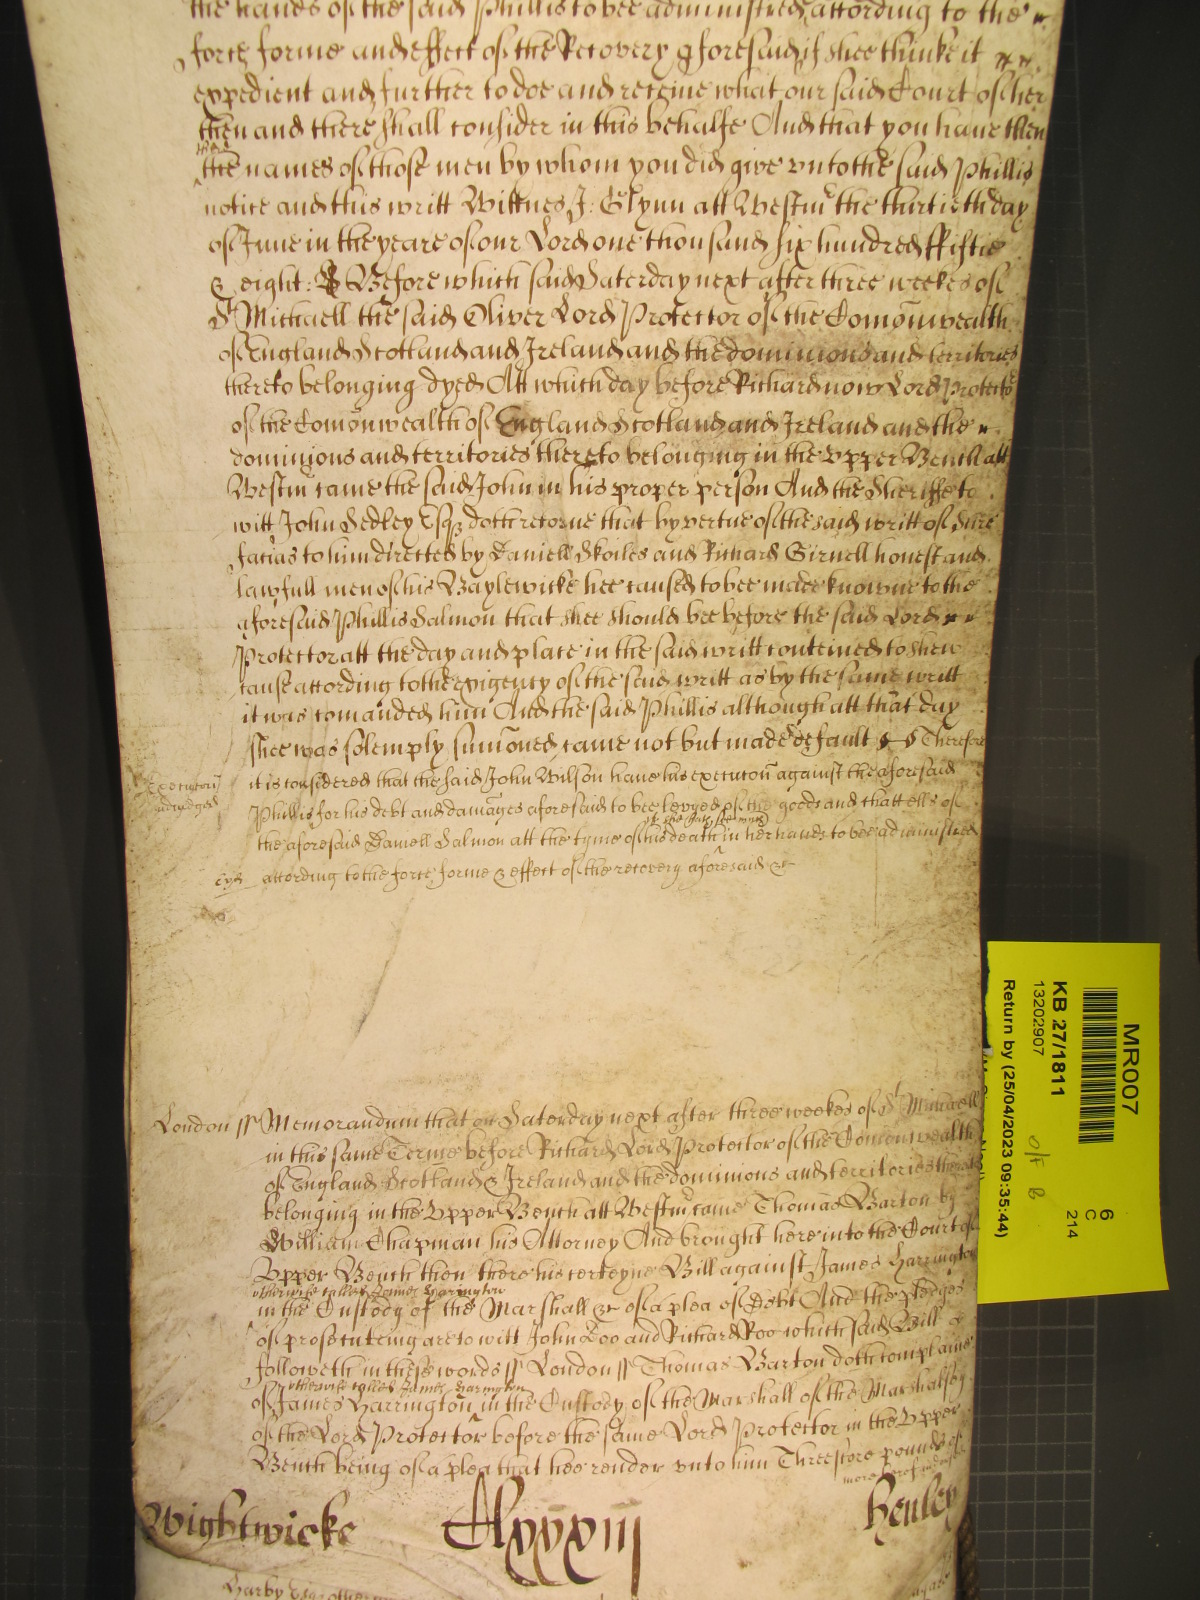 the hands of the said Phillis to bee administred according to the
force forme and effect of the Recovery aforesaid if shee thinke it
expedient and further to doe and receive what our said Court of her
then and there shall consider in this behalfe And that you have then
the names of those men by whom you did give unto the said Phillis
notice and this writt Wittnes J: Glynn att Westm the thirtieth day
of June in the yeare of our Lord one thousand six hundred ffiftie
& eight: Before which said Saturday next after three weekes of
St Michaell the said Oliver Lord Protector of the Comonwealth
of England Scotland and Ireland and the dominions and territories
thereto belonging dyed Att which day before Richard now Lord Protector
of the Comonwealth of England Scotland and Ireland and the
dominions and territories thereto belonging in the Upper Bench att
Westm came the said John in his proper person And the Sheriffe to
witt John Sedley Esq doth retorne that by vertue of the said writt of Scire
facias to him directed by Daniell Skoiles and Richard Girnell honest and
lawfull men of his Baylewicke hee caused to bee made knowne to the
aforesaid Phillis Salmon that shee should bee before the said Lord
Protector att the day and place in the said writt conteined to shew
cause according to the exigency of the said writt as by the same writt
it was comanded him And the said Phillis although att that day
shee was solemply sumoned came not but made default Therefore
it is considered that the said John Wilson have his execucon against the aforesaid
Execucon
adjudged
Phillis for his debt and damages aforesaid to bee levyed of the goods and chattells of
the aforesaid Daniell Salmon att the tyme of his death in her hands to bee administred
according to the force forme & effect of the recovery aforesaid &c
London Memorandum that on Saterday next after three weekes of St Michaell
in this same Terme before Richard Lord Protector of the Comonwealth
of England Scotland & Ireland and the dominions and territories thereto
belonging in the Upper Bench att Westm came Thomas Barton by
William Chapman his Attorney And brought here into the Court of
Upper Bench then there his certeyne Bill against James Harrington
otherwise called James Harington
in the Custody of the Marshall &c of a plea of Debt And the pledges
of prosecuteing are to witt John Doo and Richard Roo which said Bill
followeth in these words London Thomas Barton doth complaine
otherwise called James Harington
of James Harrington in the Custody of the Marshall of the Marshalsey
of the Lord Protector before the same Lord Protector in the Upper
Bench being of a plea that hee render unto him Threescore pounds of
Wightwicke
Clxxxiij
Henley
MR007
KB 27/1811
13202907
Return by (25/04/2023 09:35:44)
6
C
214